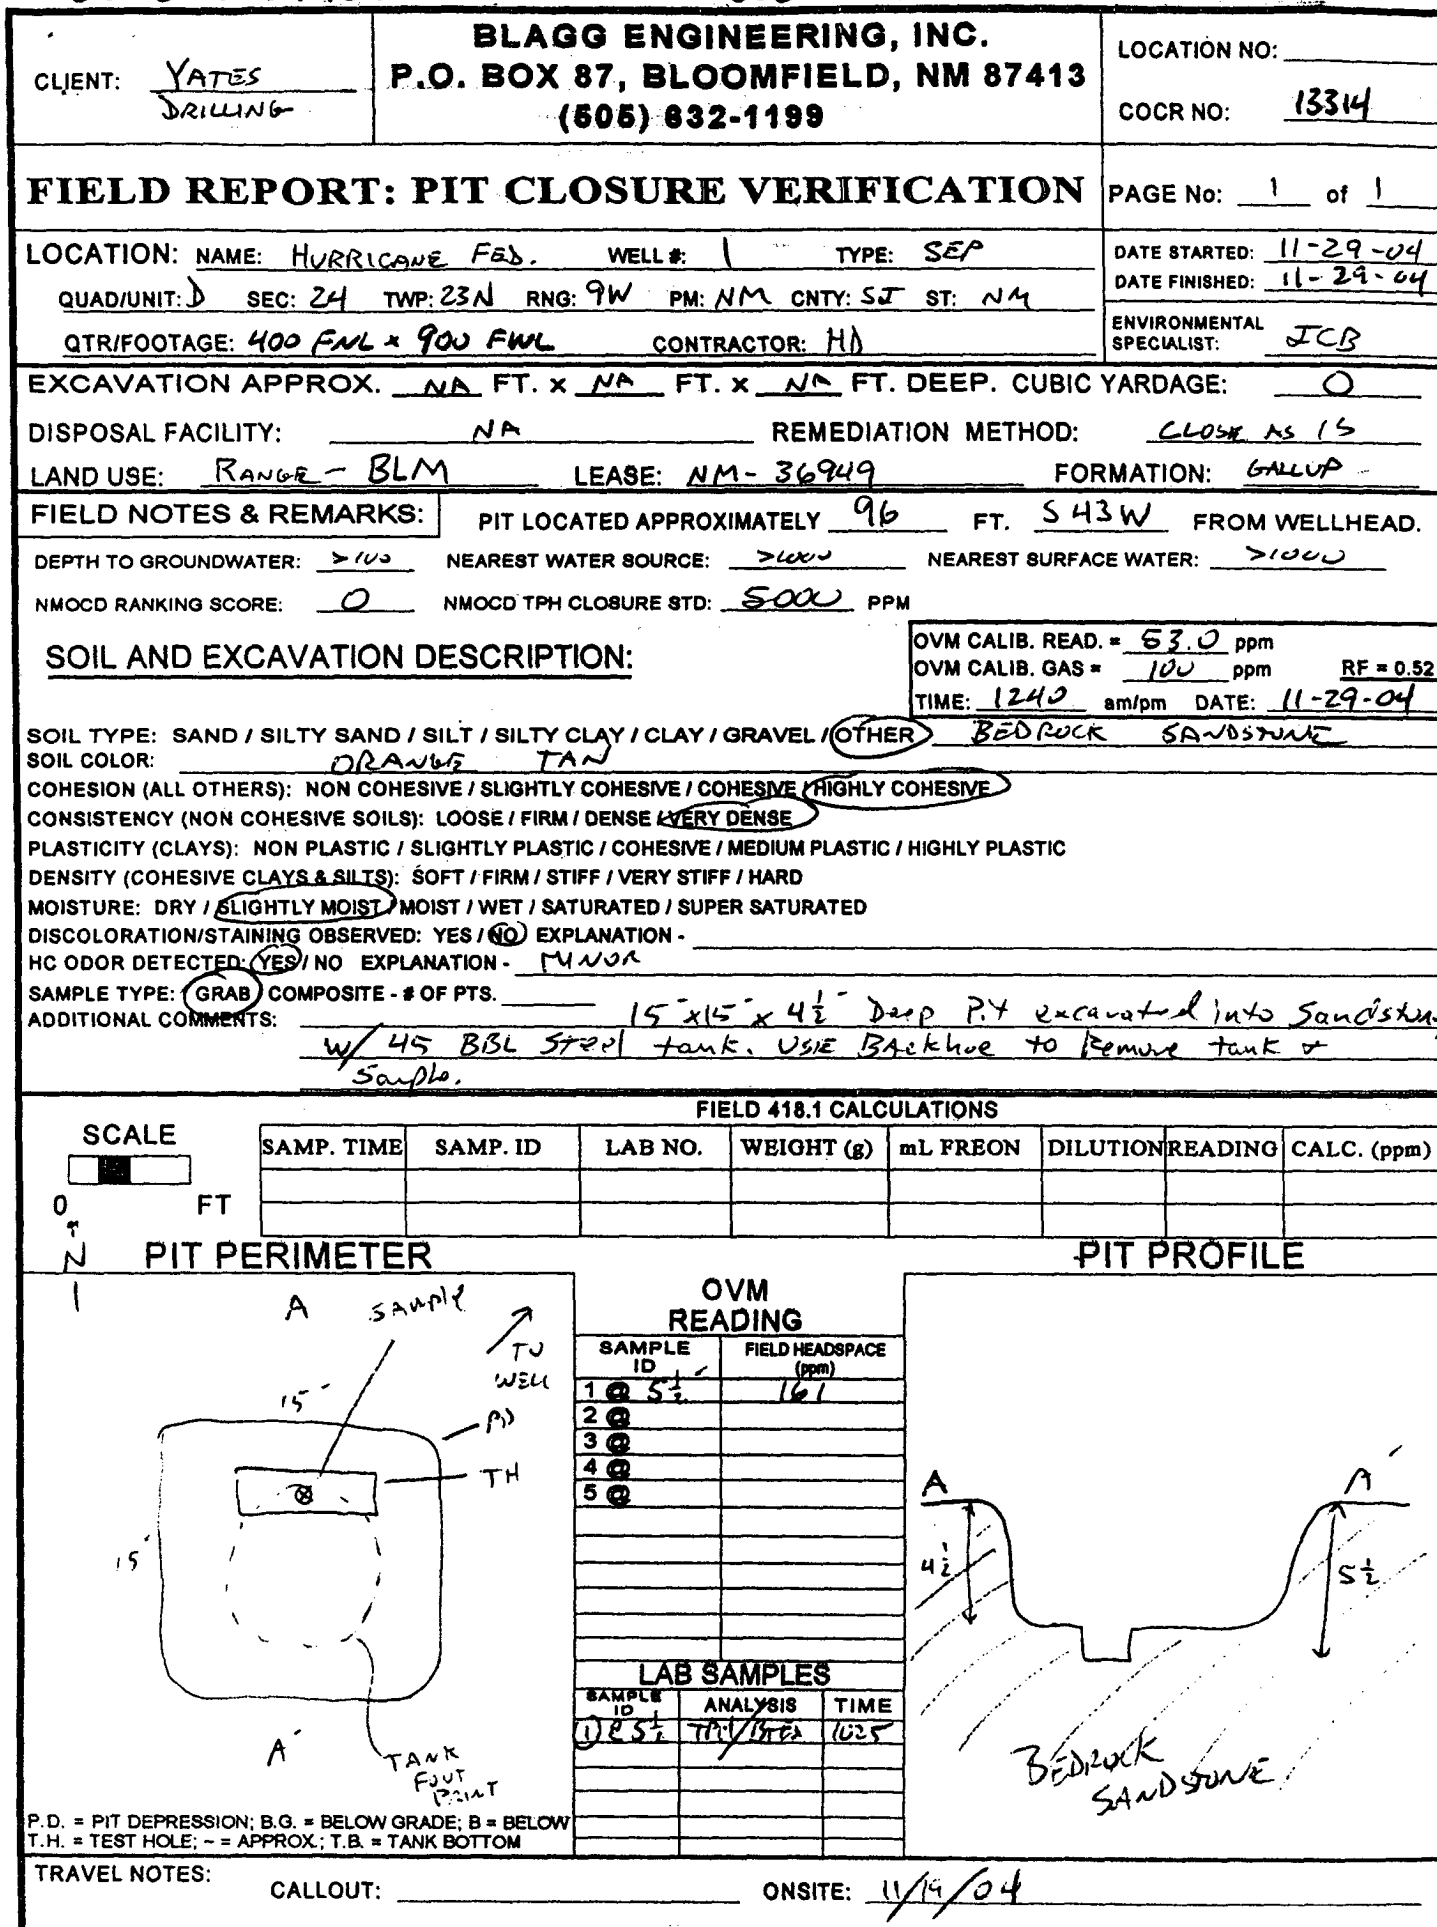 BLAGG ENGINEERING, INC.
P.O. BOX 87, BLOOMFIELD, NM 87413
(505) 632-1199
CLIENT: YATES
DRILLING
LOCATION NO:
COCR NO: 13314
FIELD REPORT: PIT CLOSURE VERIFICATION
PAGE No: 1 of 1
LOCATION: NAME: HURRICANE FED. WELL #: 1 TYPE: SEP
QUAD/UNIT: D SEC: 24 TWP: 23N RNG: 9W PM: NM CNTY: SJ ST: NM
QTR/FOOTAGE: 400 FNL x 900 FWL CONTRACTOR: HD
DATE STARTED: 11-29-04
DATE FINISHED: 11-29-04
ENVIRONMENTAL
SPECIALIST: JCB
EXCAVATION APPROX. NA FT. x NA FT. x NA FT. DEEP. CUBIC YARDAGE: 0
DISPOSAL FACILITY: NA REMEDIATION METHOD: CLOSE AS IS
LAND USE: RANGE - BLM LEASE: NM-36949 FORMATION: GALLUP
FIELD NOTES & REMARKS: PIT LOCATED APPROXIMATELY 96 FT. S43W FROM WELLHEAD.
DEPTH TO GROUNDWATER: >100 NEAREST WATER SOURCE: >1000 NEAREST SURFACE WATER: >1000
NMOCD RANKING SCORE: 0 NMOCD TPH CLOSURE STD: 5000 PPM
SOIL AND EXCAVATION DESCRIPTION:
OVM CALIB. READ. = 53.0 ppm
OVM CALIB. GAS = 100 ppm RF = 0.52
TIME: 1240 am/pm DATE: 11-29-04
SOIL TYPE: SAND / SILTY SAND / SILT / SILTY CLAY / CLAY / GRAVEL / OTHER BEDROCK SANDSTONE
SOIL COLOR: ORANGE TAN
COHESION (ALL OTHERS): NON COHESIVE / SLIGHTLY COHESIVE / COHESIVE / HIGHLY COHESIVE
CONSISTENCY (NON COHESIVE SOILS): LOOSE / FIRM / DENSE / VERY DENSE
PLASTICITY (CLAYS): NON PLASTIC / SLIGHTLY PLASTIC / COHESIVE / MEDIUM PLASTIC / HIGHLY PLASTIC
DENSITY (COHESIVE CLAYS & SILTS): SOFT / FIRM / STIFF / VERY STIFF / HARD
MOISTURE: DRY / SLIGHTLY MOIST / MOIST / WET / SATURATED / SUPER SATURATED
DISCOLORATION/STAINING OBSERVED: YES / NO EXPLANATION -
HC ODOR DETECTED: YES / NO EXPLANATION - MINOR
SAMPLE TYPE: GRAB / COMPOSITE - # OF PTS.
ADDITIONAL COMMENTS: 15' x 15' x 4½' Deep Pit excavated into Sandstone
w/ 45 BBL Steel tank. USE BAckhoe to Remove tank &
Sample.
FIELD 418.1 CALCULATIONS
SCALE
0 FT
SAMP. TIME SAMP. ID LAB NO. WEIGHT (g) mL FREON DILUTION READING CALC. (ppm)
N
PIT PERIMETER
A
SAMPLE
TO
WELL
15'
PD
TH
15'
A'
TANK
FOOT
PRINT
P.D. = PIT DEPRESSION; B.G. = BELOW GRADE; B = BELOW
T.H. = TEST HOLE; ~ = APPROX.; T.B. = TANK BOTTOM
OVM
READING
SAMPLE ID FIELD HEADSPACE (ppm)
1 @ 5½' 161
2 @
3 @
4 @
5 @
LAB SAMPLES
SAMPLE ID ANALYSIS TIME
① @ 5½' TPH/BTEX 1025
PIT PROFILE
A A'
4½
5½
BEDROCK
SANDSTONE
TRAVEL NOTES:
CALLOUT: ONSITE: 11/19/04